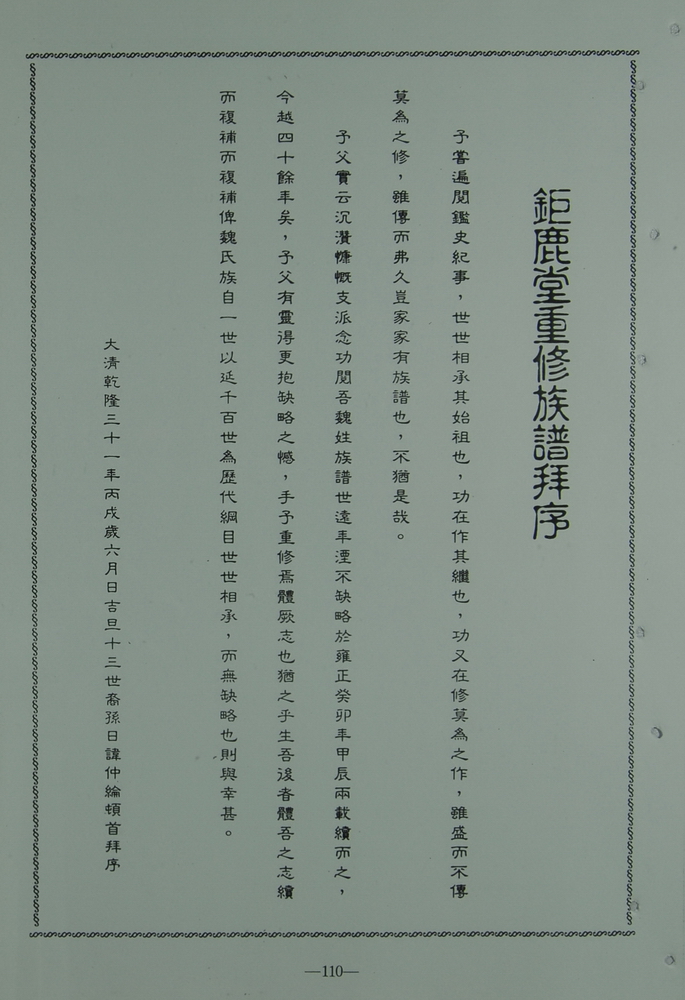 鉅鹿堂重修族譜拜序
予嘗遍閱鑑史紀事，世世相承其始祖也，功在作其繼也，功又在修莫為之作，雖盛而不傳
莫為之修，雖傳而弗久豈家家有族譜也，不猶是哉。
予父實云沉潛慷慨支派念功閱吾魏姓族譜世遠年湮不缺略於雍正癸卯年甲辰兩載續而之，
今越四十餘年矣，予父有靈得更抱缺略之憾，手予重修焉體厥志也猶之乎生吾後者體吾之志續
而複補而複補俾魏氏族自一世以延千百世為歷代綱目世世相承，而無缺略也則與幸甚。
大清乾隆三十一年丙戌歲六月日吉旦十三世裔孫日諱仲綸頓首拜序
—110—